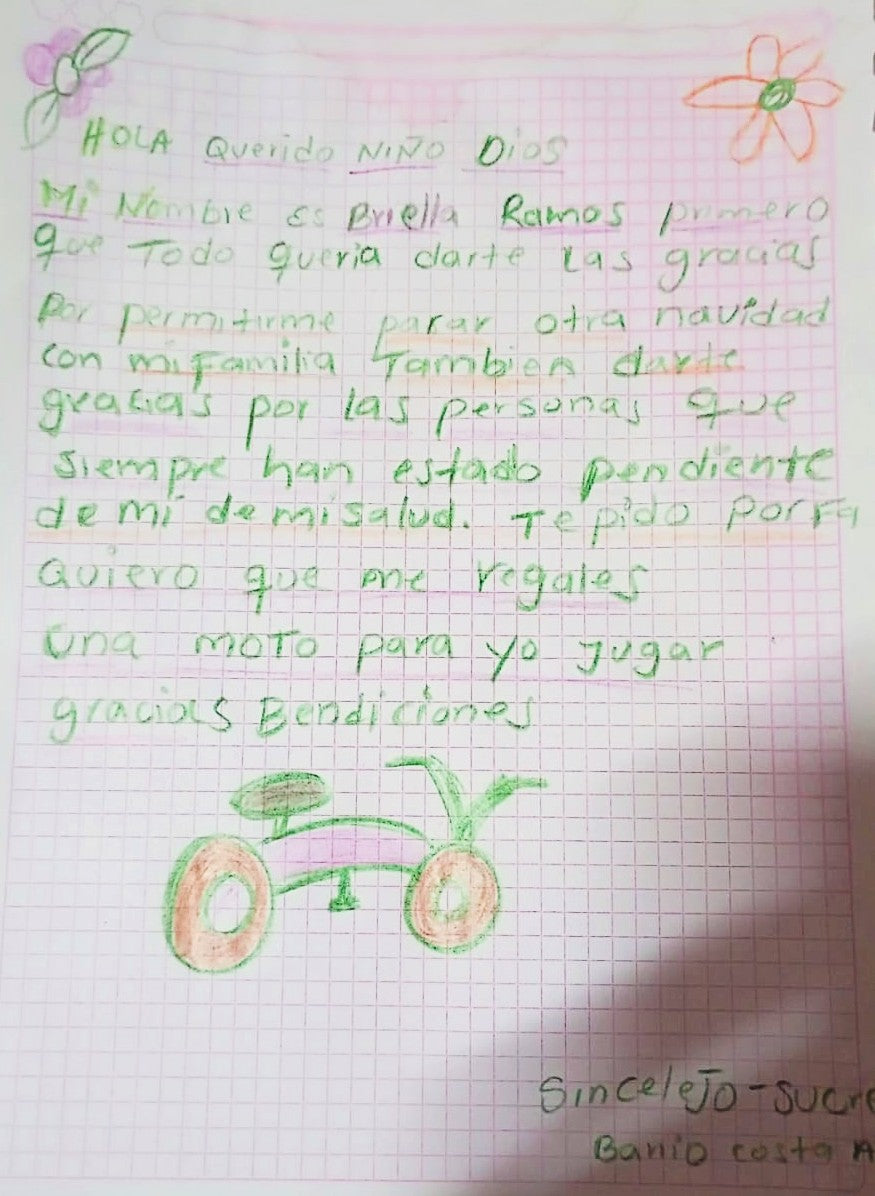 HOLA Querido NIÑO Dios
Mi Nombre es Briella Ramos primero
que Todo queria darte Las gracias
Por permitirme parar otra navidad
con mi Familia Tambien darte
gracias por las personas que
siempre han estado pendiente
de mi de mi salud. Te pido PorFa
Quiero que me regales
una moto para yo Jugar
gracias Bendiciones
Sincelejo-Sucre
Barrio costa A